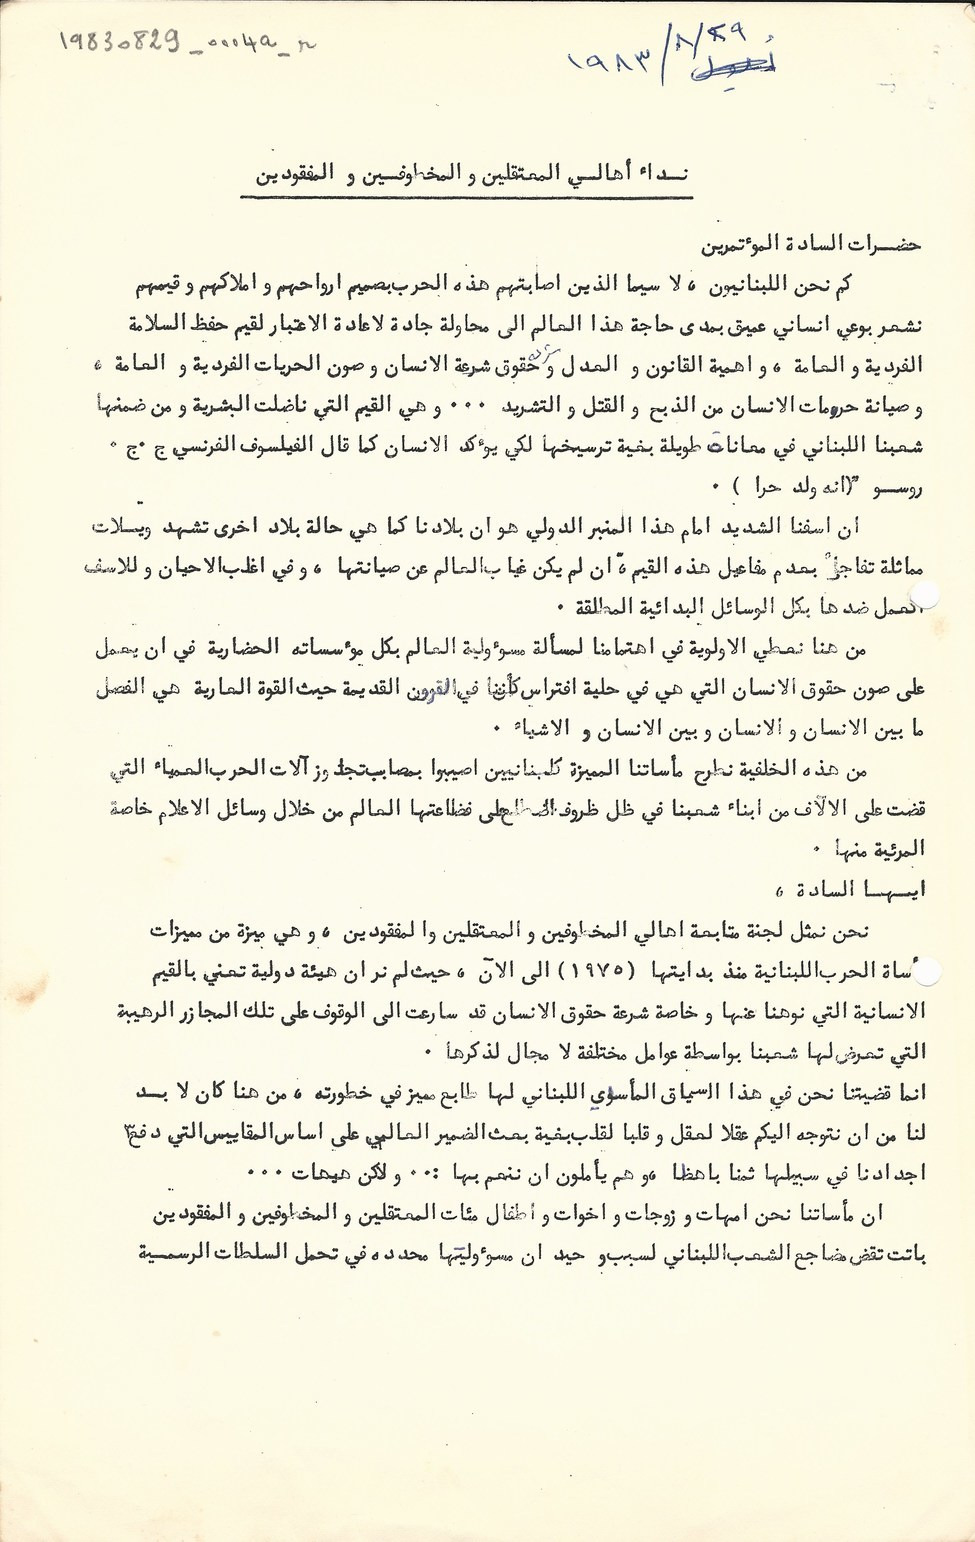 19830829_0004a_r
٢٩/٨/١٩٨٣
نداء أهالي المعتقلين و المخطوفين و المفقودين
حضرات السادة المؤتمرين
كم نحن اللبنانيون ، لا سيما الذين اصابتهم هذه الحرب بصميم ارواحهم و املاكهم و قيمهم
نشعر بوعي انساني عميق بمدى حاجة هذا العالم الى محاولة جادة لاعادة الاعتبار لقيم حفظ السلامة
الفردية و العامة ، و اهمية القانون و العدل و حقوق شرعة الانسان و صون الحريات الفردية و العامة ،
و صيانة حرومات الانسان من الذبح و القتل و التشريد ... و هي القيم التي ناضلت البشرية و من ضمنها
شعبنا اللبناني في معانات طويلة بغية ترسيخها لكي يؤكد الانسان كما قال الفيلسوف الفرنسي ج . ج .
روسو "(انه ولد حرا ) .
ان اسفنا الشديد امام هذا المنبر الدولي هو ان بلادنا كما هي حالة بلاد اخرى تشهد ويلات
مماثلة تفاجأ بعدم مفاعيل هذه القيم ، ان لم يكن غياب العالم عن صيانتها ، و في اغلب الاحيان و للاسف
العمل ضدها بكل الوسائل البدائية المطلقة .
من هنا نعطي الاولوية في اهتمامنا لمسألة مسؤولية العالم بكل مؤسساته الحضارية في ان يعمل
على صون حقوق الانسان التي هي في حلية افتراس كأننا في القرون القديمة حيث القوة العارية هي الفصل
ما بين الانسان و الانسان و بين الانسان و الاشياء .
من هذه الخلفية نطرح مأساتنا المميزة كلبنانيين اصيبوا بمصاب تجاوز آلات الحرب العمياء التي
قضت على الالآف من ابناء شعبنا في ظل ظروف على فظاعتها العالم من خلال وسائل الاعلام خاصة
المرئية منها .
ايها السادة ،
نحن نمثل لجنة متابعة اهالي المخطوفين و المعتقلين والمفقودين ، و هي ميزة من مميزات
أساة الحرب اللبنانية منذ بدايتها (١٩٧٥) الى الآن ، حيث لم نر ان هيئة دولية تعني بالقيم
الانسانية التي نوهنا عنها و خاصة شرعة حقوق الانسان قد سارعت الى الوقوف على تلك المجازر الرهيبة
التي تعرض لها شعبنا بواسطة عوامل مختلفة لا مجال لذكرها .
انما قضيتنا نحن في هذا السياق المأسوي اللبناني لها طابع مميز في خطورته ، من هنا كان لا بد
لنا من ان نتوجه اليكم عقلا لعقل و قلبا لقلب بغية بعث الضمير العالمي على اساس المقاييس التي دفع
اجدادنا في سبيلها ثمنا باهظا ، و هم يأملون ان ننعم بها :.. و لاكن هيهات ...
ان مأساتنا نحن امهات و زوجات و اخوات و اطفال مئات المعتقلين و المخطوفين و المفقودين
باتت تقض مضاجع الشعب اللبناني لسبب و حيد ان مسؤوليتها محدده في تحمل السلطات الرسمية